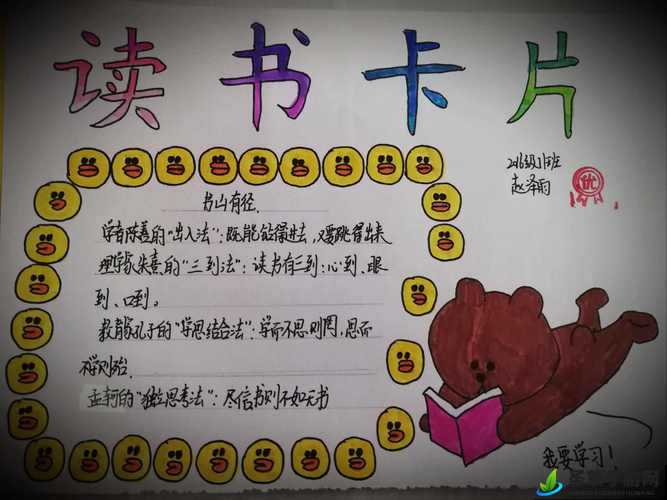 读书卡片
2016级1班
赵泽雨
优
书山有径.
学者陈善的"出入法"：既能钻得进去，又要跳得出来
理学家朱熹的"三到法"：读书有三到：心到、眼
到、口到。
教育家孔子的"学思结合法"：学而不思则罔，思而
不学则殆.
孟轲的"独立思考法"：尽信书则不如无书
我要学习！